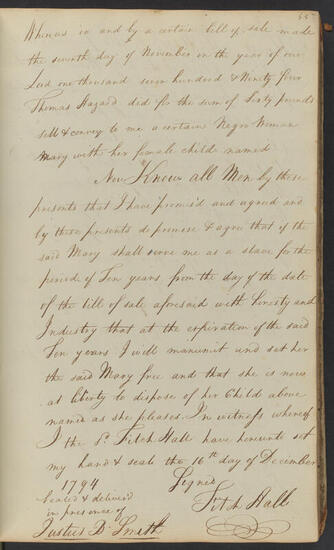 Whereas in and by a certain bill of sale made
the seventh day of November in the year of our
Lord one thousand seven hundred & Ninety four
Thomas Hazard did for the sum of Sixty pounds
sell & convey to me a certain Negro Woman
Mary with her female child named
Now Know all Men by these
presents that I have promised and agreed and
by these presents do promise & agree that if the
said Mary shall serve me as a slave for the
period of Ten years from the day of the date
of the bill of sale aforesaid with honesty and
Industry that at the expiration of the said
Ten years I will manumit and set her
the said Mary free and that she is now
at liberty to dispose of her Child above
named as she pleases. In witness whereof
I the sd. Fitch Hall have hereunto set
my hand & seale the 16th day of December
1794 Signed
Sealed & delivered
in presence of Fitch Hall
Justus B. Smith